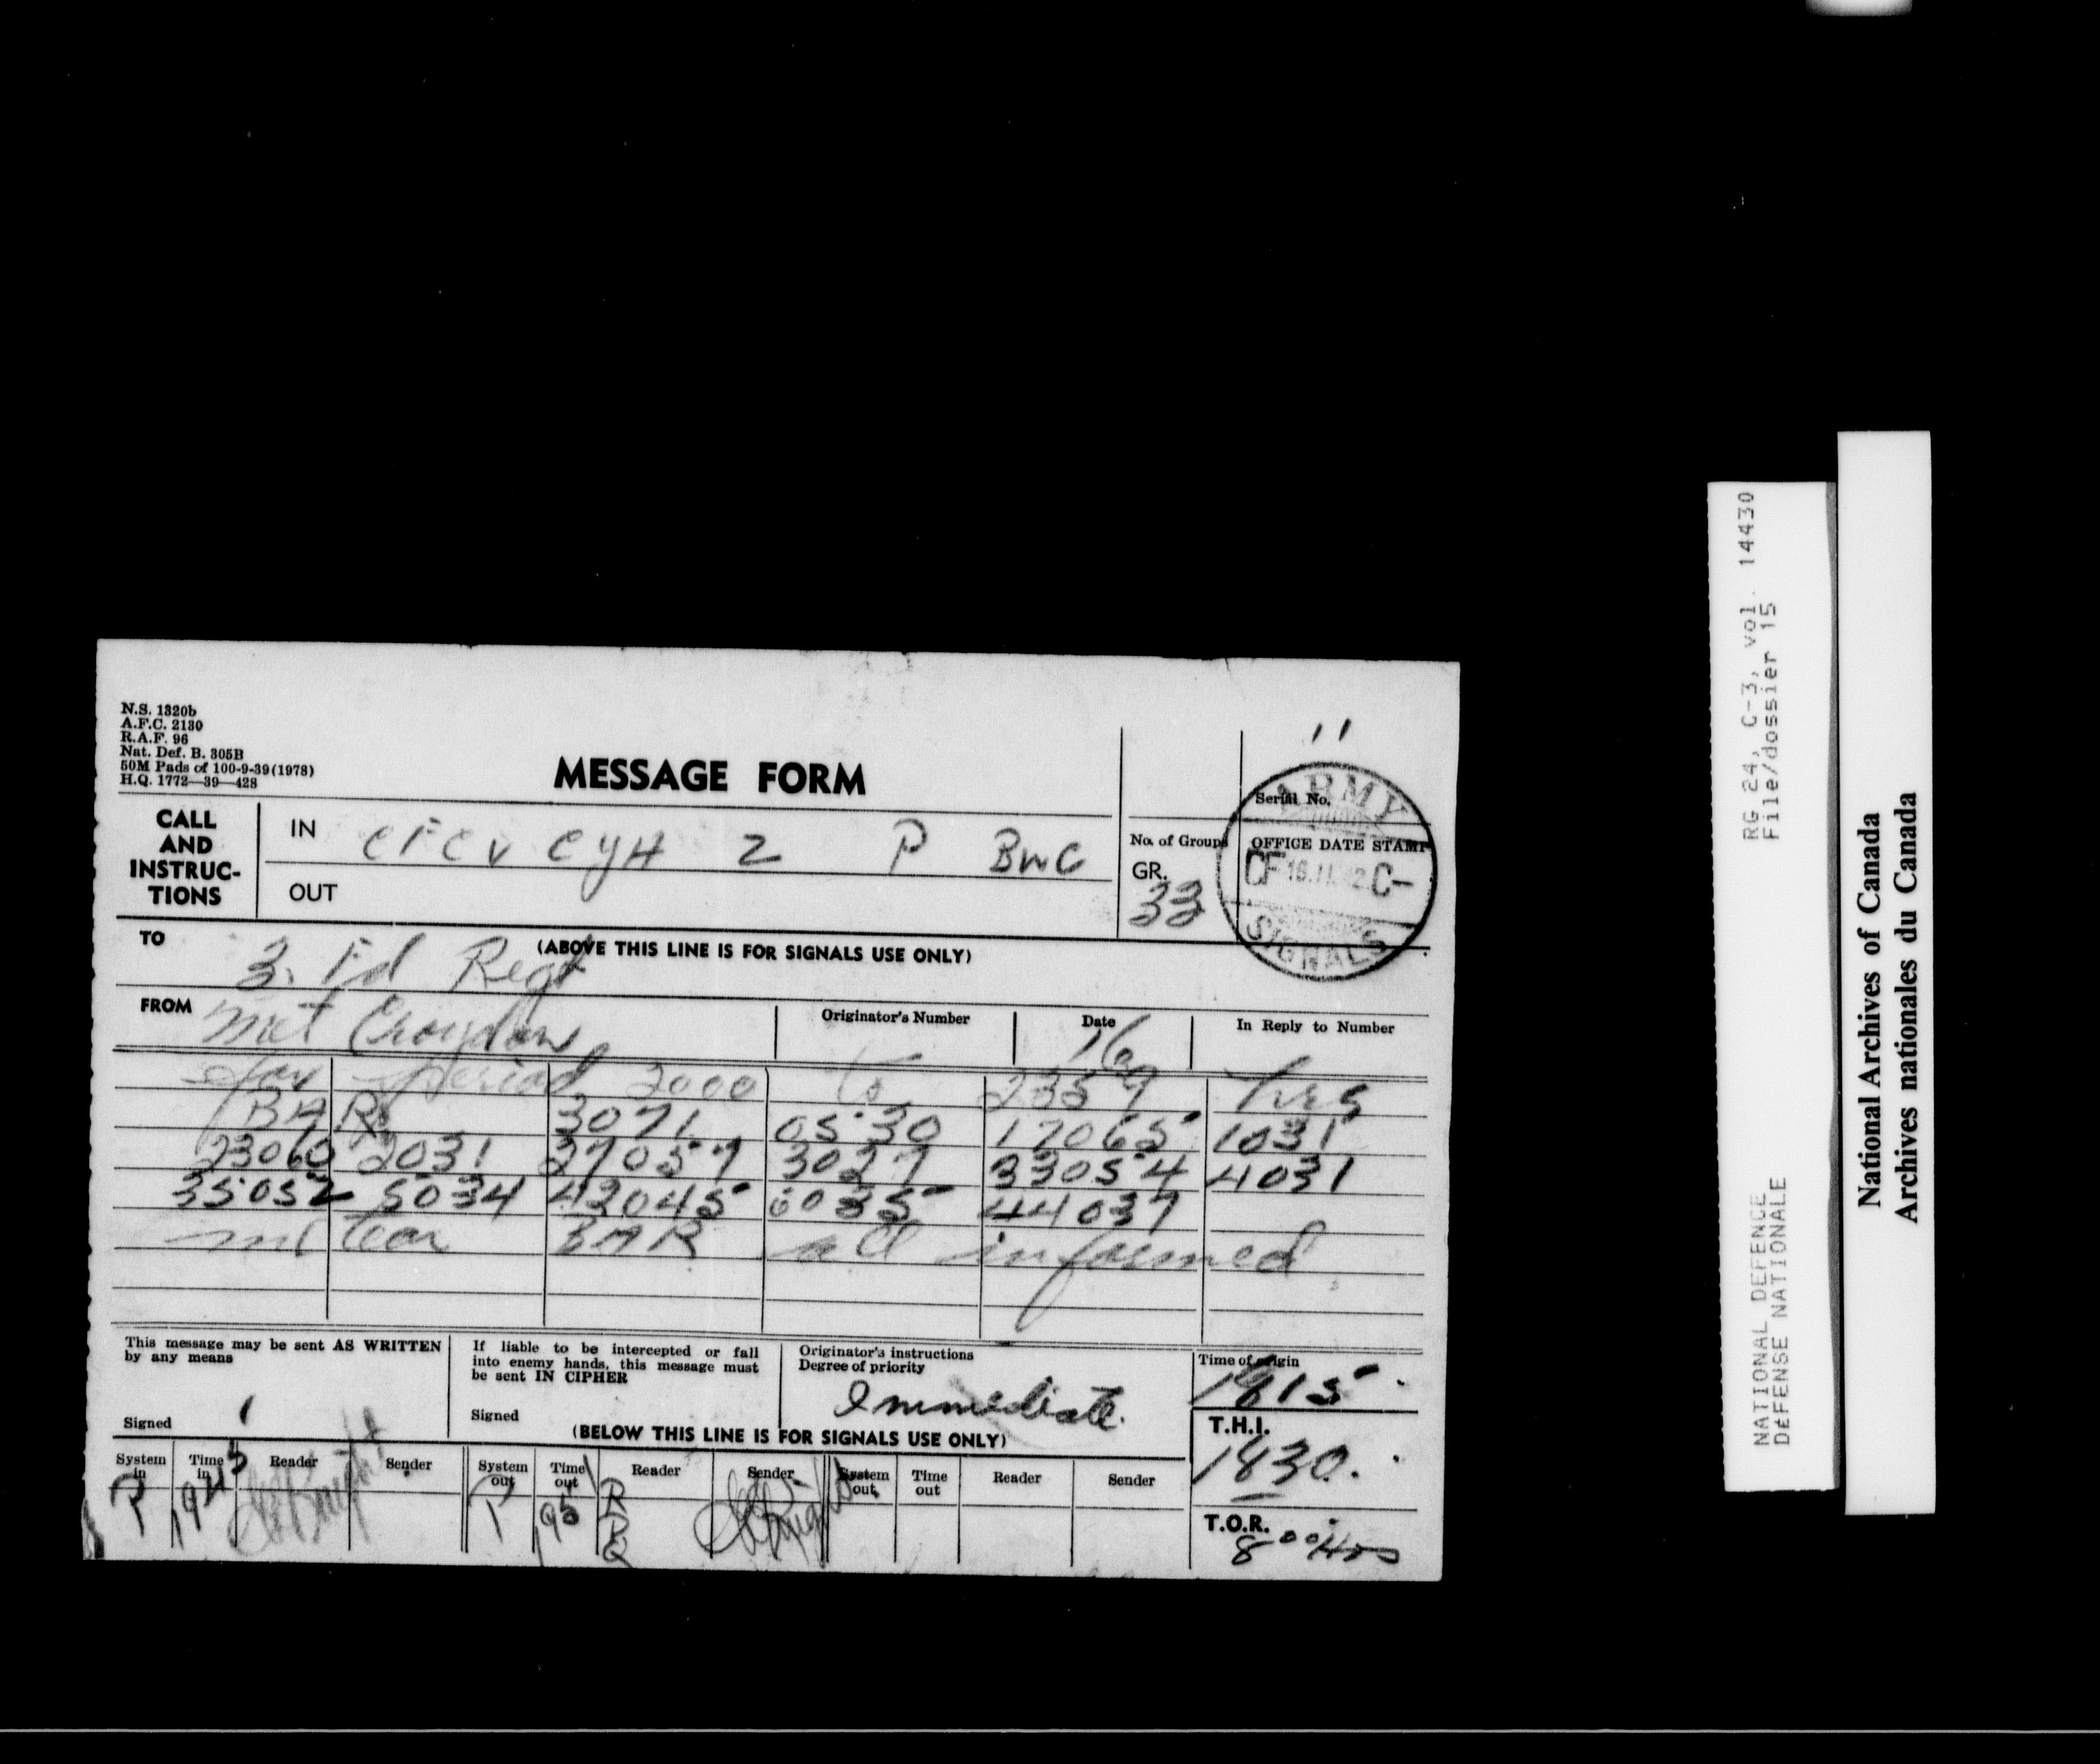 N.S. 1320b
A.F.C. 2130
R.A.F. 96
Nat. Def. B. 305B
50M Pads of 100-9-39(1978)
H.Q. 1772—39—428
MESSAGE FORM
11
Serial No.
CALL AND INSTRUC-TIONS
IN CFCV CYH 2 P BWC
OUT
No. of Groups
GR. 33
OFFICE DATE STAMP
ARMY
CF 16.11. C-
SIGNALS
(ABOVE THIS LINE IS FOR SIGNALS USE ONLY)
TO 3. Fd Regt
FROM Met Croydon
Originator's Number
Date 16
In Reply to Number
for period 2000 to 2359 hrs
BAR 3071 0530 17065 1031
23060 2031 27057 3027 33054 4031
35052 5034 42045 6035 44037
BAR all informed
This message may be sent AS WRITTEN
by any means
Signed
If liable to be intercepted or fall
into enemy hands, this message must
be sent IN CIPHER
Signed
Originator's instructions
Degree of priority
Immediate.
Time of origin
1815
(BELOW THIS LINE IS FOR SIGNALS USE ONLY)
T.H.I.
1830.
System in
Time in
Reader
Sender
System out
Time out
Reader
Sender
System out
Time out
Reader
Sender
P
P
T.O.R.
8 00 Hrs
RG 24, C-3, vol. 14430
File/dossier 15
NATIONAL DEFENCE
DEFENSE NATIONALE
National Archives of Canada
Archives nationales du Canada